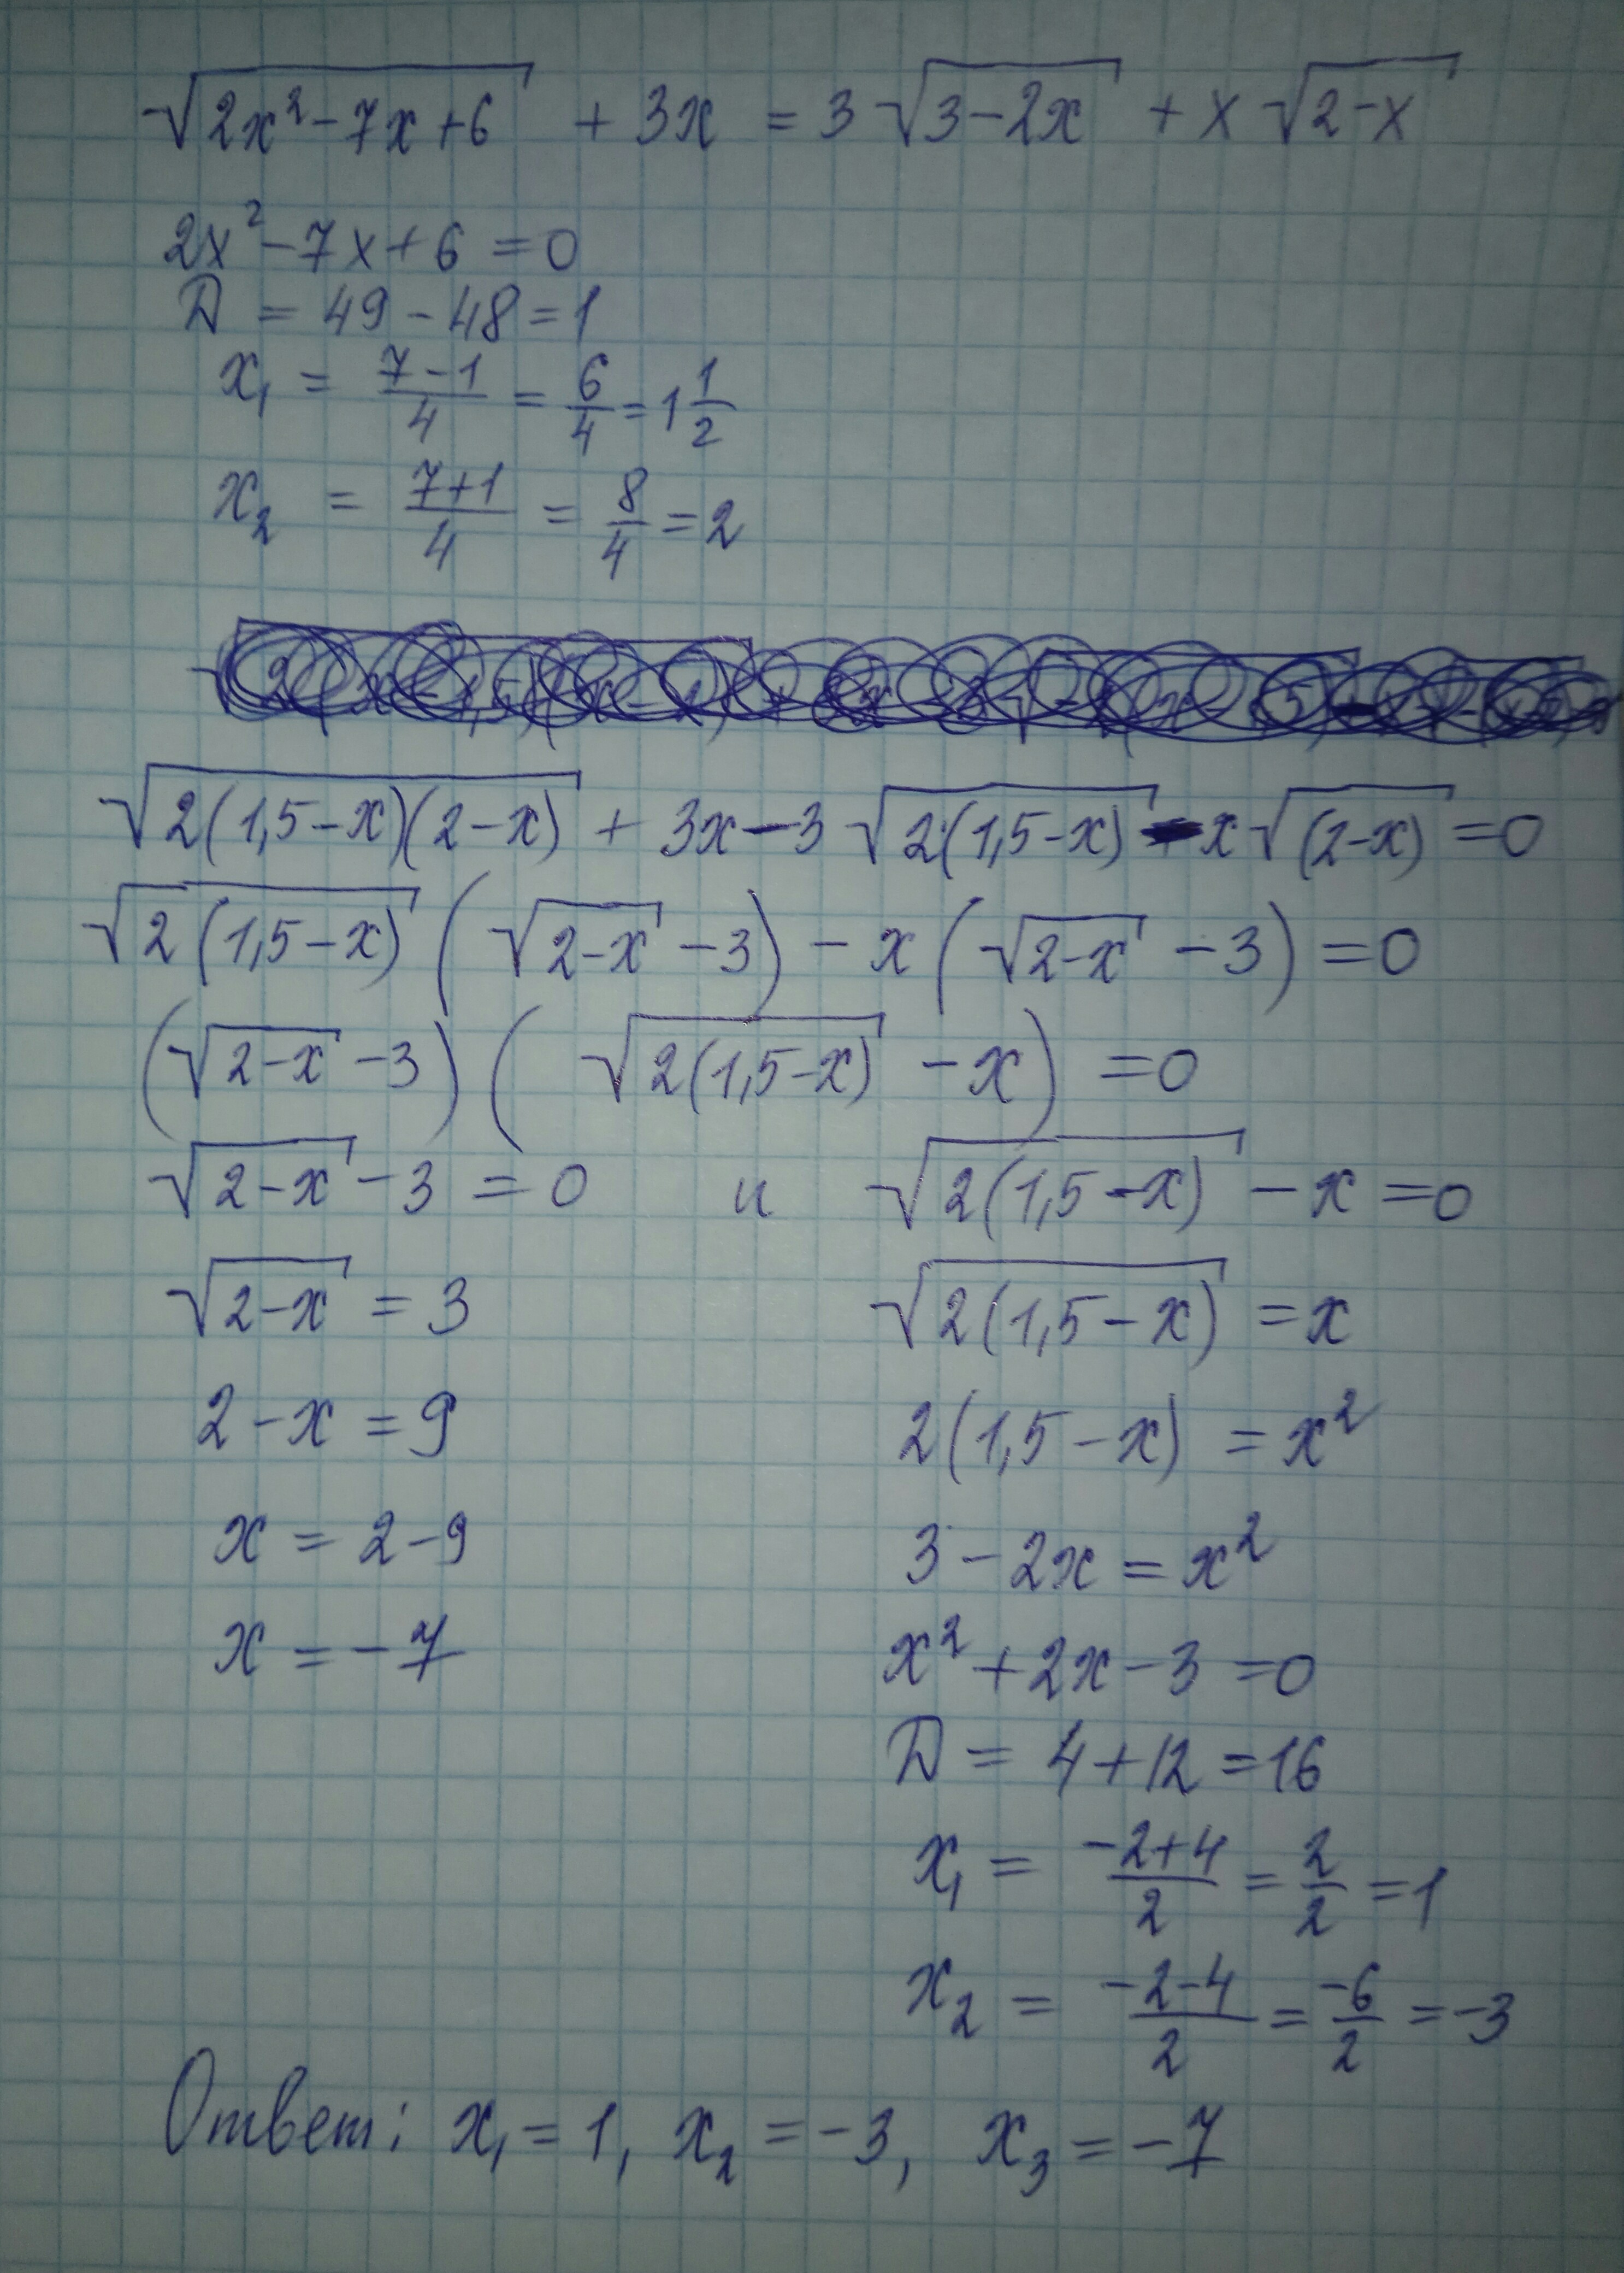 √(2x² - 7x + 6) + 3x = 3√(3 - 2x) + x√(2 - x)
2x² - 7x + 6 = 0
D = 49 - 48 = 1
x₁ = (7 - 1)/4 = 6/4 = 1 1/2
x₂ = (7 + 1)/4 = 8/4 = 2
√(2(1,5 - x)(2 - x)) + 3x - 3√(2(1,5 - x)) - x√((2 - x)) = 0
√(2(1,5 - x)) (√(2 - x) - 3) - x(√(2 - x) - 3) = 0
(√(2 - x) - 3)(√(2(1,5 - x)) - x) = 0
√(2 - x) - 3 = 0 и √(2(1,5 - x)) - x = 0
√(2 - x) = 3 √(2(1,5 - x)) = x
2 - x = 9 2(1,5 - x) = x²
x = 2 - 9 3 - 2x = x²
x = -7 x² + 2x - 3 = 0
D = 4 + 12 = 16
x₁ = (-2 + 4)/2 = 2/2 = 1
x₂ = (-2 - 4)/2 = -6/2 = -3
Ответ: x₁ = 1, x₂ = -3, x₃ = -7